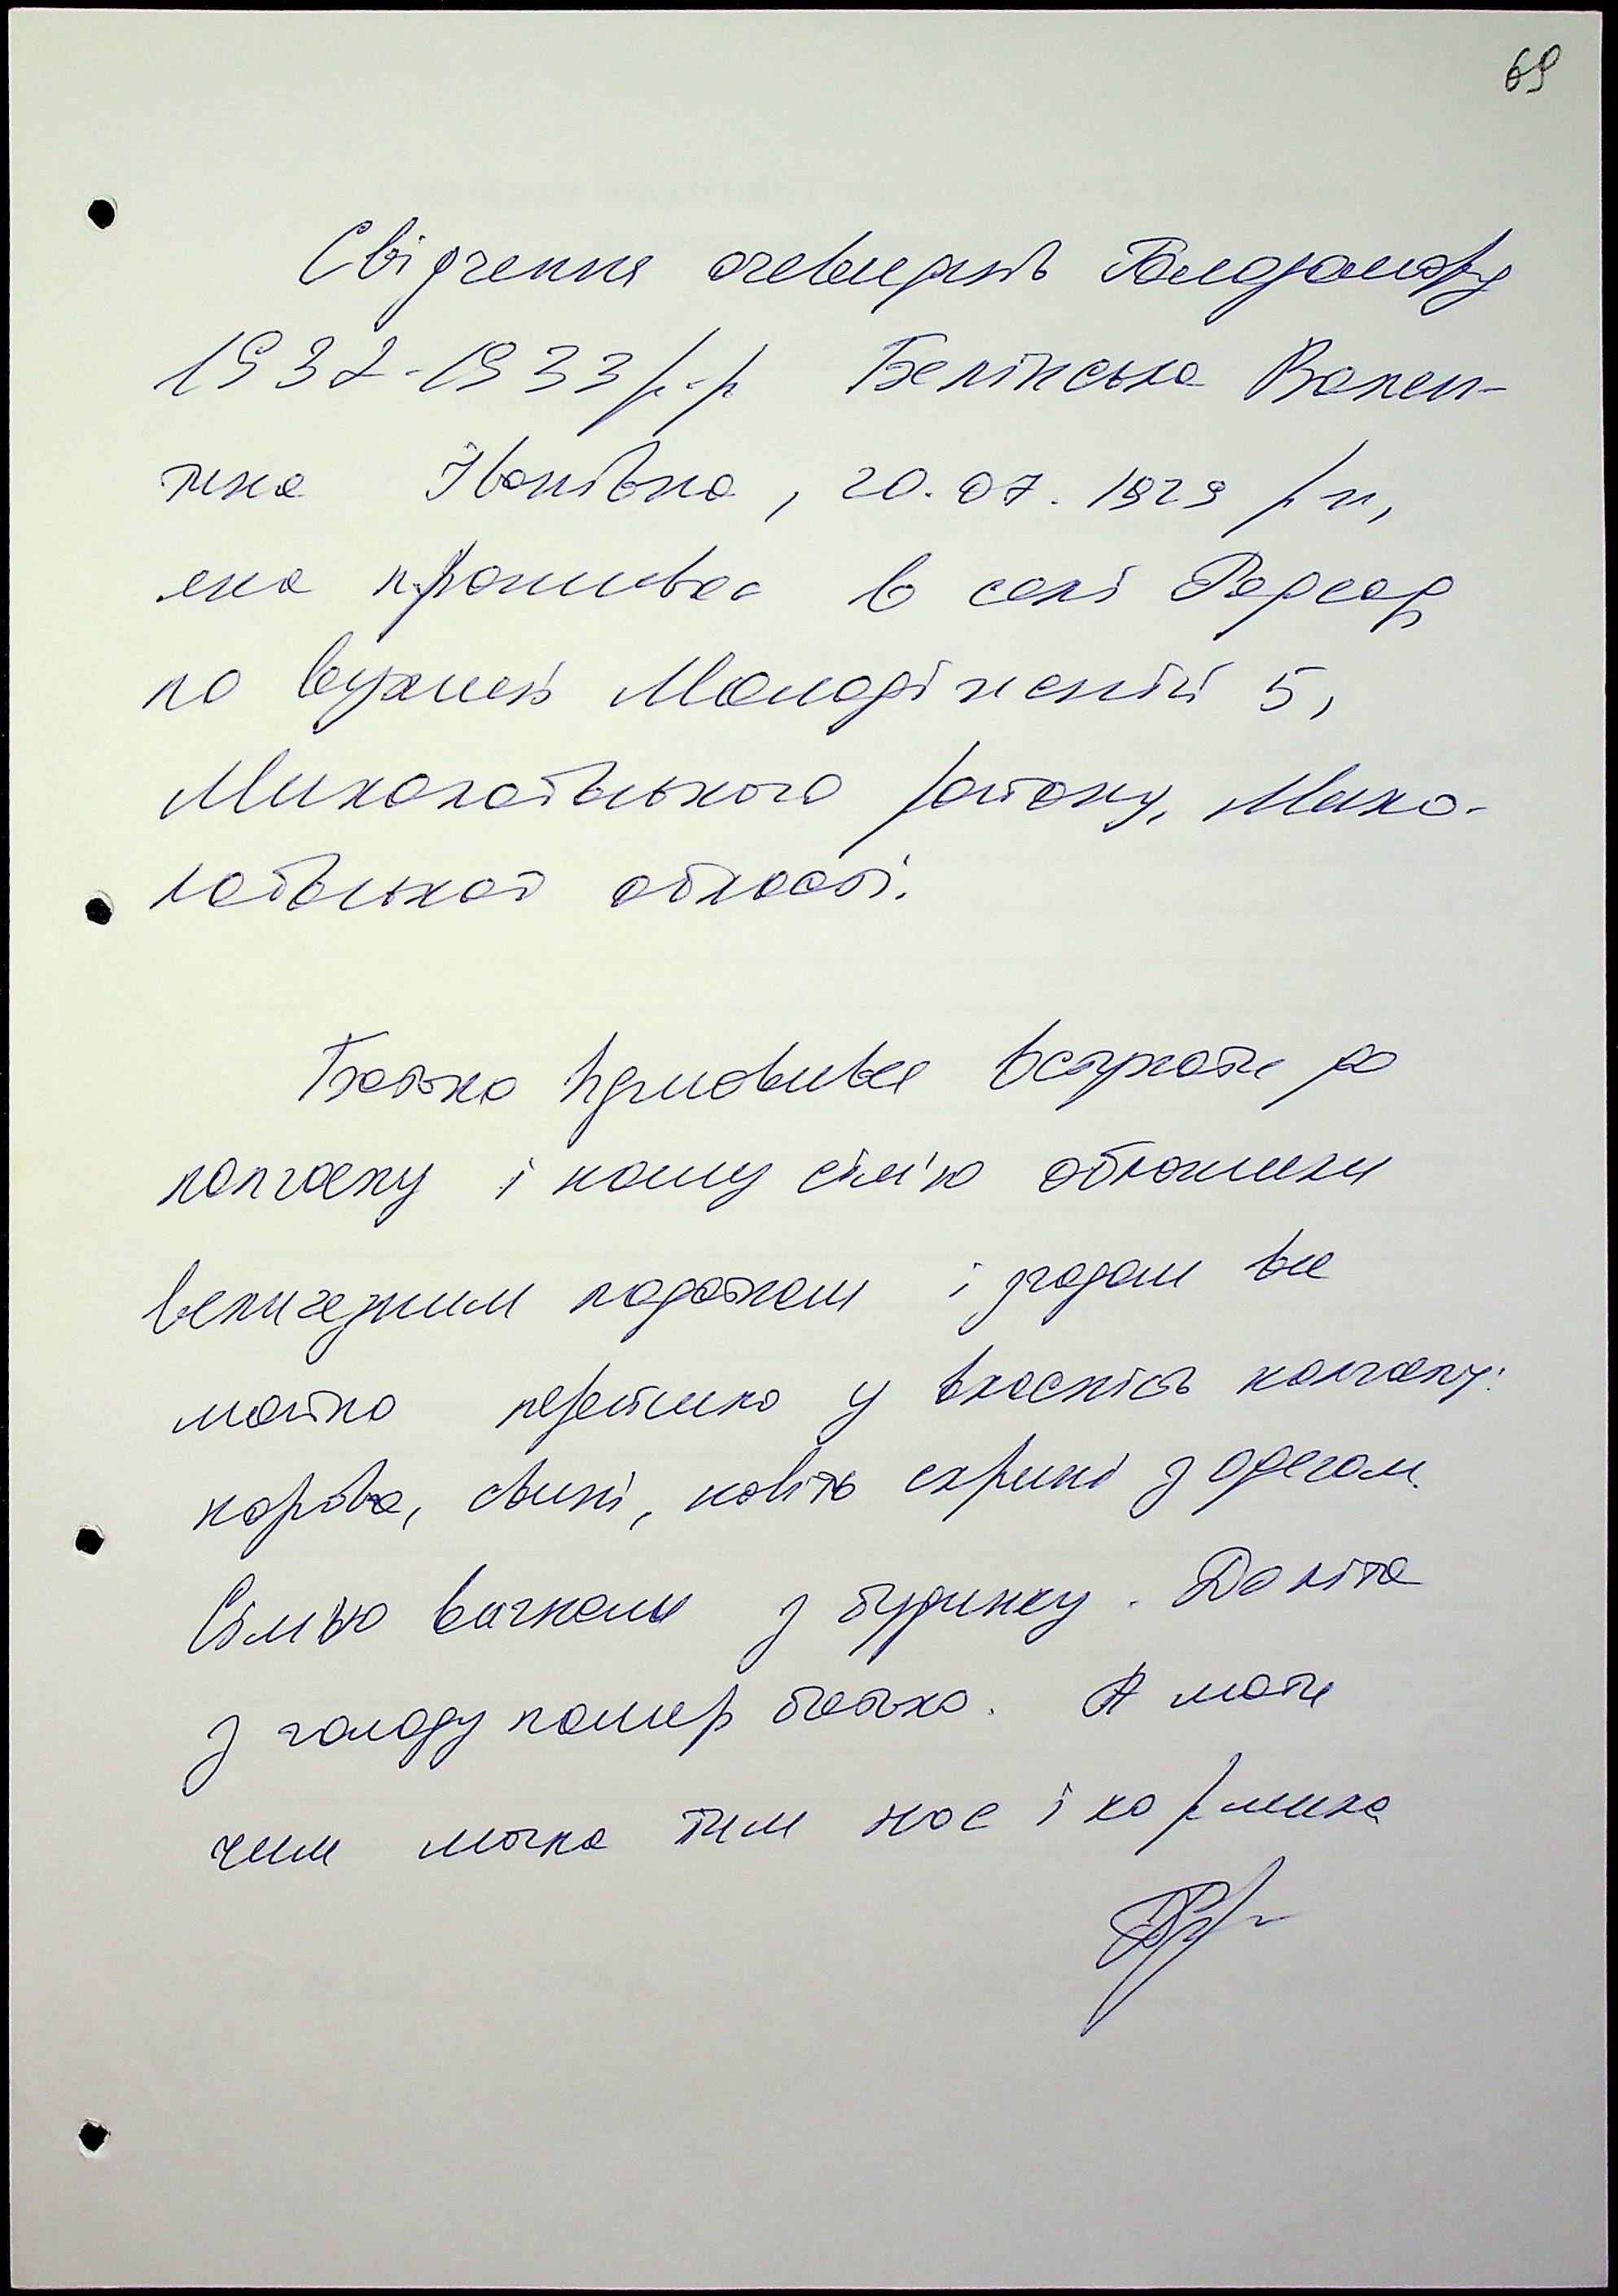 69
Свідчення очевидців Голодомору
1932-1933 р.р Белінська Вален-
тина Іванівна, 20.07.1929 р н,
яка проживає в селі Радсад
по вулиці Молодіжній 5,
Миколаївського району, Мико-
лаївської області.
Батько відмовився вступати до
колгоспу і нашу сім'ю обложили
величезним податком і згодом все
майно перейшло у власність колгоспу:
корова, свині, навіть скрині з одягом.
Сім'ю вигнали з будинку. До літа
з голоду помер батько. А мати
чим могла тим нас і кормила